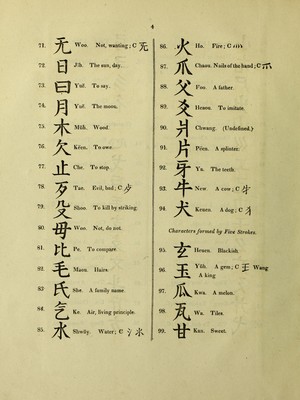 4
71. 无 Woo. Not, wanting; C 旡
72. 日 Jĭh. The sun, day.
73. 曰 Yuĕ. To say.
74. 月 Yuĕ. The moon.
75. 木 Mŭh. Wood.
76. 欠 Këen. To owe.
77. 止 Che. To stop.
78. 歹 Tae. Evil, bad; C 歺
79. 殳 Shoo. To kill by striking.
80. 毋 Woo. Not, do not.
81. 比 Pe. To compare.
82. 毛 Maou. Hairs.
83. 氏 She. A family name.
84. 气 Ke. Air, living principle.
85. 水 Shwŭy. Water; C 氵氺
86. 火 Ho. Fire; C 灬
87. 爪 Chaou. Nails of the hand; C 爫
88. 父 Foo. A father.
89. 爻 Heaou. To imitate.
90. 爿 Chwang. (Undefined.)
91. 片 Pëen. A splinter.
92. 牙 Ya. The teeth.
93. 牛 New. A cow; C 牜
94. 犬 Keuen. A dog; C 犭
Characters formed by Five Strokes.
95. 玄 Heuen. Blackish.
96. 玉 Yŭh. A gem; C 王 Wang
A king
97. 瓜 Kwa. A melon.
98. 瓦 Wa. Tiles.
99. 甘 Kan. Sweet.